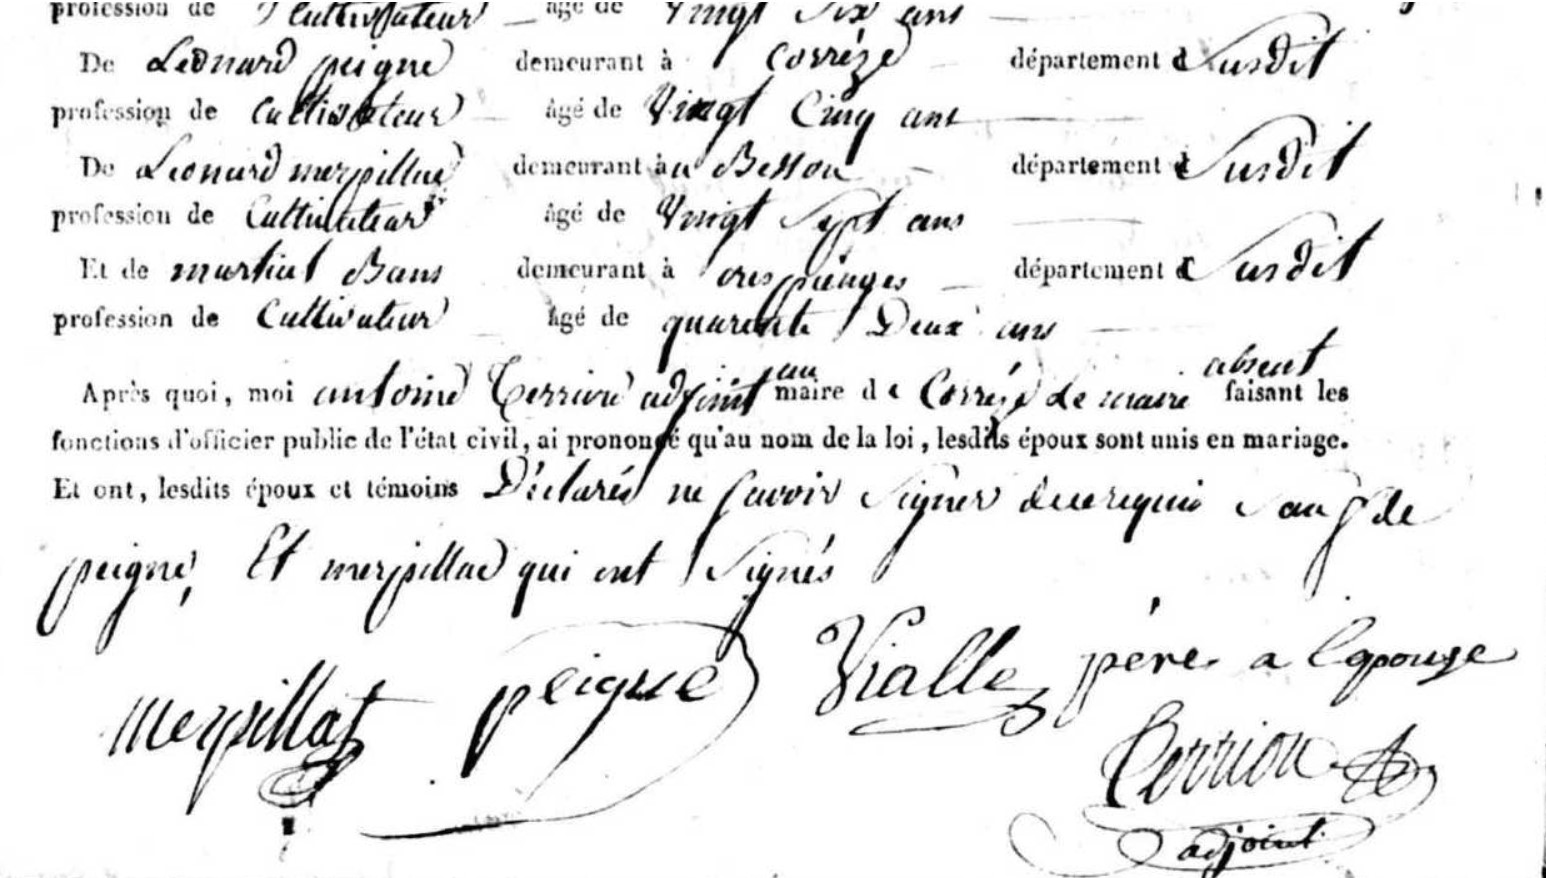 profession de Cultivateur âgé de Vingt Six ans
De Léonard peigne demeurant à Corrèze département d Susdit
profession de Cultivateur âgé de Vingt Cinq ans
De Léonard merpillat demeurant à u Besson département d Susdit
profession de Cultivateur âgé de Vingt Sept ans
Et de martial Bans demeurant à département d Susdit
profession de Cultivateur âgé de quarente Deux ans
Après quoi, moi antoine Terriou adjoint au maire de Corrèze le maire absent faisant les
fonctions d'officier public de l'état civil, ai prononcé qu'au nom de la loi, lesdits époux sont unis en mariage.
Et ont, lesdits époux et témoins Déclarés ne savoir Signer de ce requis Sauf le
peigne, Et merpillat qui ont Signés
merpillat peigne Vialle père a lepouse
Terriou
adjoint